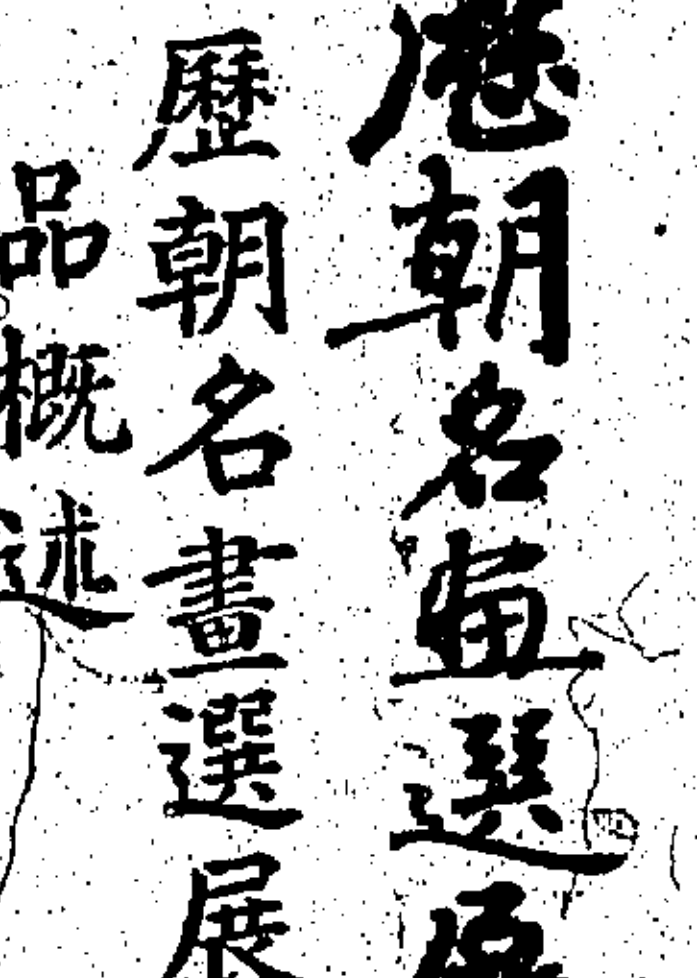 歷朝名畫選展
歷朝名畫選展
品概述